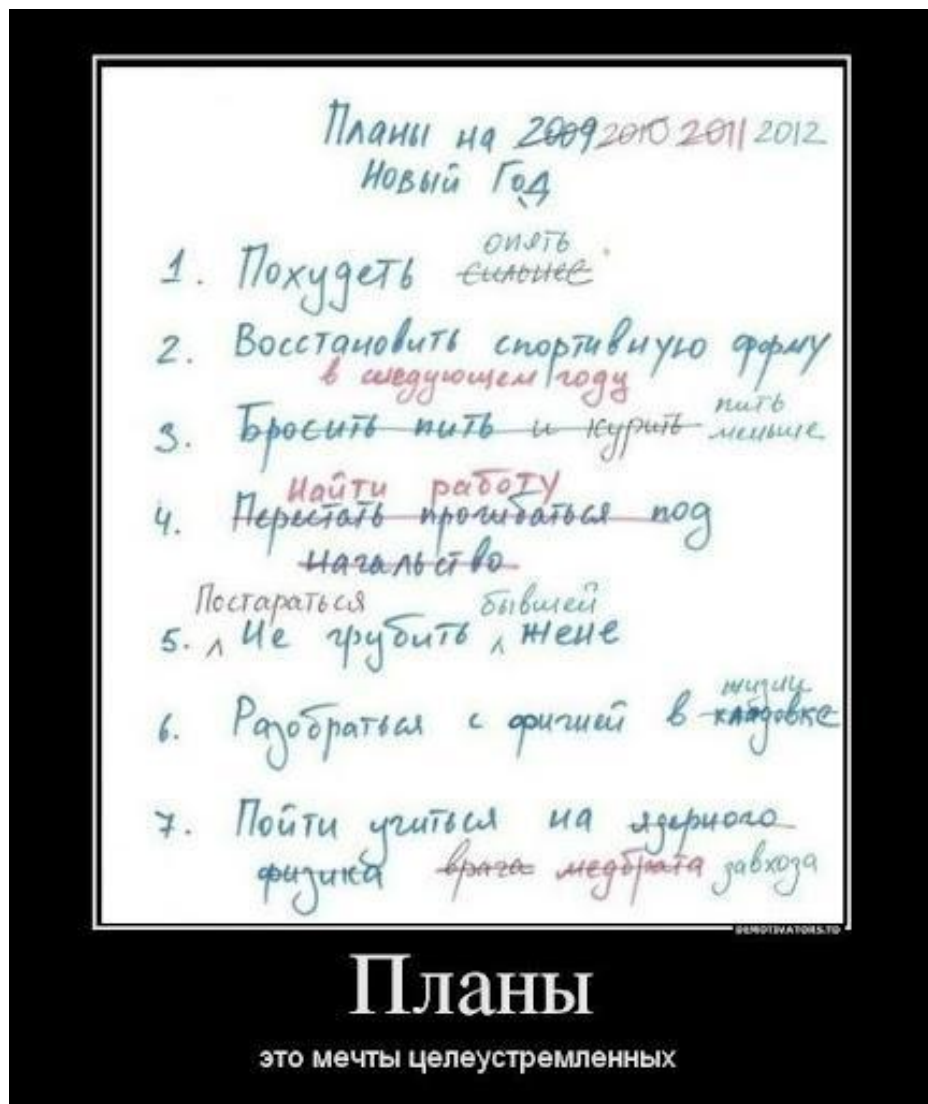 Планы на 2009 2010 2011 2012
Новый Год
опять
1. Похудеть сильнее
2. Восстановить спортивную форму
в следующем году
пить
3. Бросить пить и курить меньше
Найти работу
4. Перестать прогибаться под
начальство
Постараться бывшей
5. Не грубить жене
жизни
6. Разобраться с фигнёй в кладовке
7. Пойти учиться на ядерного
физика врача медбрата завхоза
DEMOTIVATORS.TO
Планы
это мечты целеустремленных